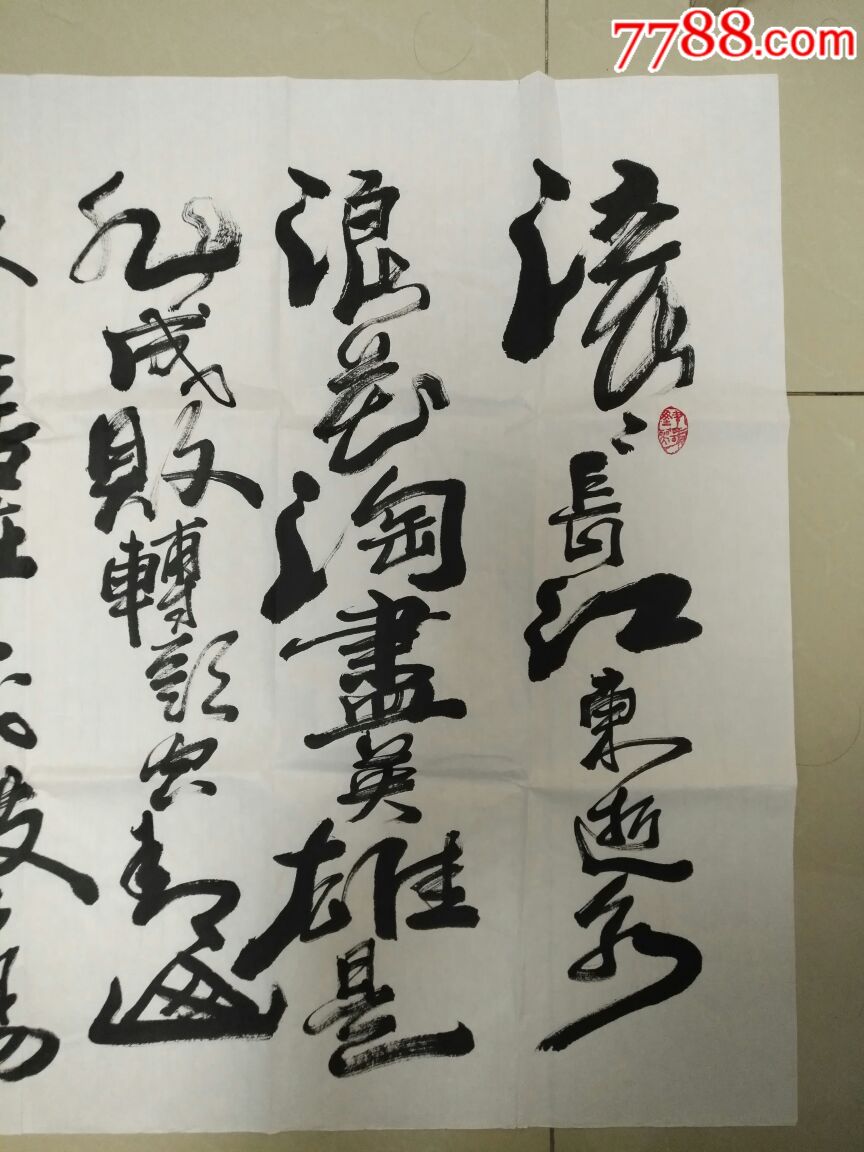 7788.com
滚〻長江東逝水
浪花淘盡英雄是
非成敗轉頭空青山